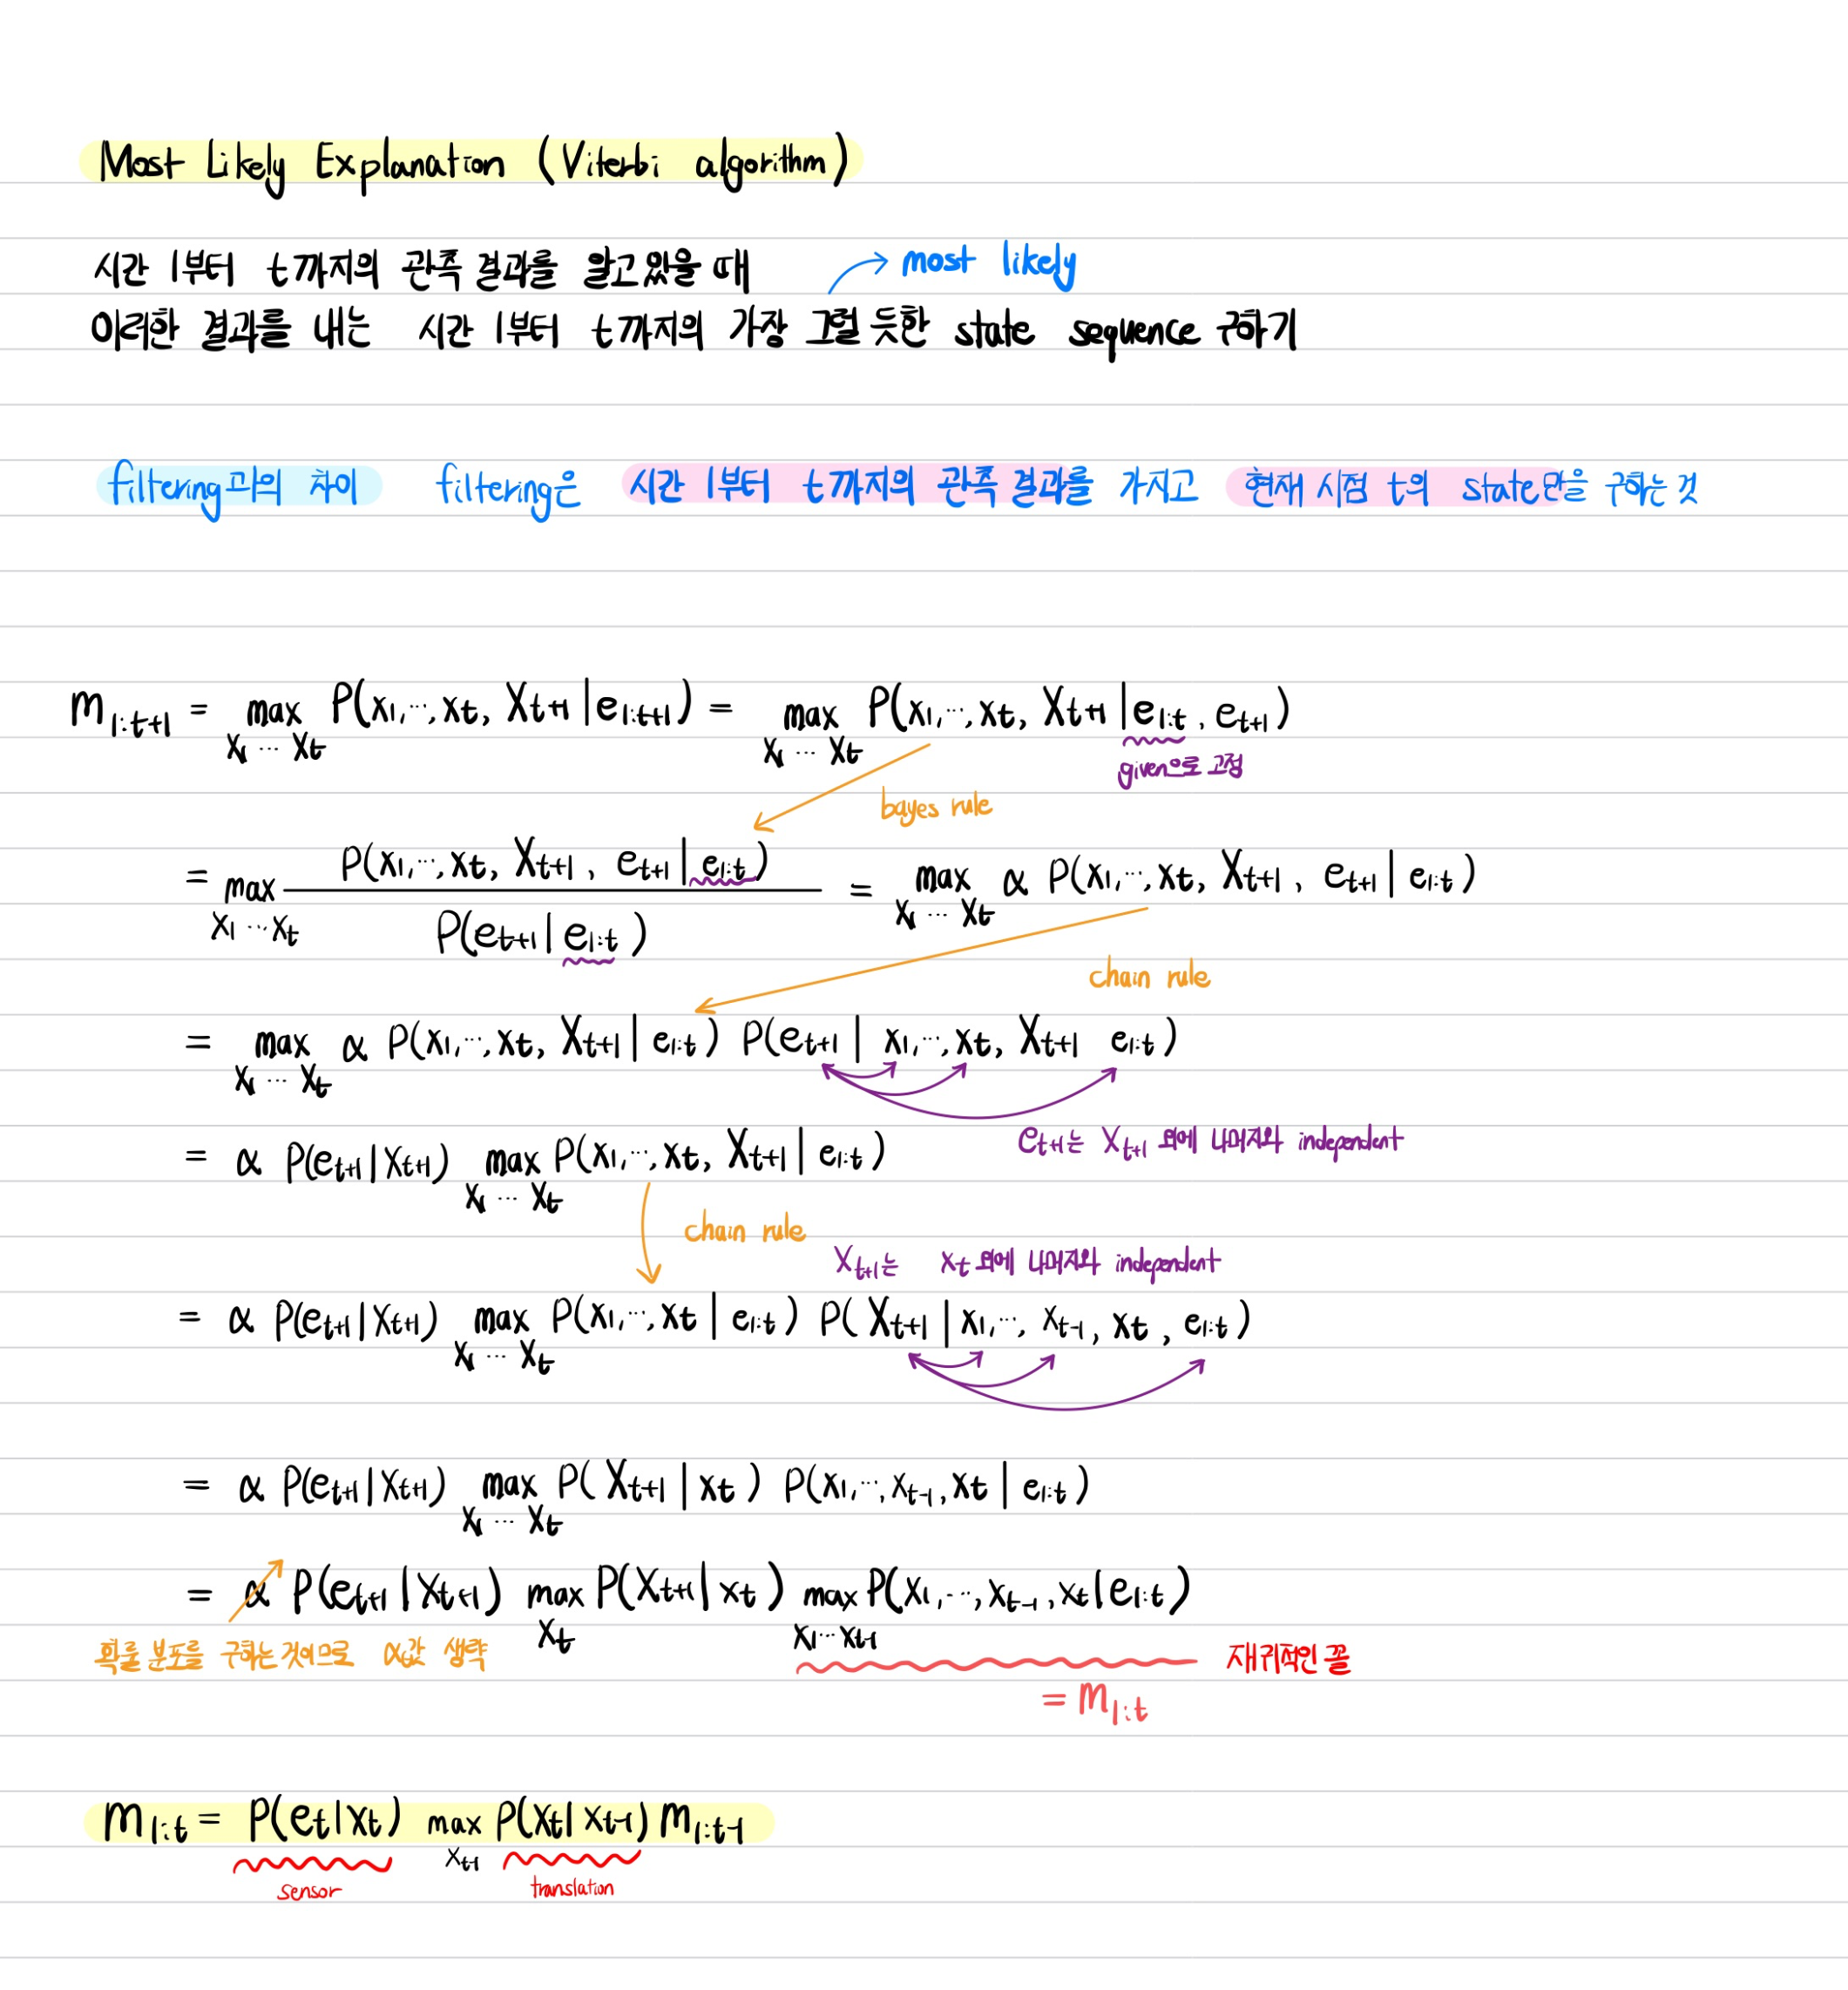 Most Likely Explanation (Viterbi algorithm)
시간 1부터 t까지의 관측 결과를 알고있을 때
most likely
이러한 결과를 내는 시간 1부터 t까지의 가장 그럴 듯한 state sequence 구하기
filtering과의 차이 filtering은 시간 1부터 t까지의 관측 결과를 가지고 현재 시점 t의 state만을 구하는 것
m_{1:t+1} = max_{x_1 ... x_t} P(x_1, ..., x_t, X_{t+1} | e_{1:t+1}) = max_{x_1 ... x_t} P(x_1, ..., x_t, X_{t+1} | e_{1:t}, e_{t+1})
given으로 고정
bayes rule
= max_{x_1 ... x_t} P(x_1, ..., x_t, X_{t+1}, e_{t+1} | e_{1:t}) / P(e_{t+1} | e_{1:t}) = max_{x_1 ... x_t} α P(x_1, ..., x_t, X_{t+1}, e_{t+1} | e_{1:t})
chain rule
= max_{x_1 ... x_t} α P(x_1, ..., x_t, X_{t+1} | e_{1:t}) P(e_{t+1} | x_1, ..., x_t, X_{t+1} e_{1:t})
e_{t+1}는 X_{t+1} 외에 나머지와 independent
= α P(e_{t+1} | X_{t+1}) max_{x_1 ... x_t} P(x_1, ..., x_t, X_{t+1} | e_{1:t})
chain rule
X_{t+1}는 x_t 외에 나머지와 independent
= α P(e_{t+1} | X_{t+1}) max_{x_1 ... x_t} P(x_1, ..., x_t | e_{1:t}) P(X_{t+1} | x_1, ..., x_{t-1}, x_t, e_{1:t})
= α P(e_{t+1} | X_{t+1}) max_{x_1 ... x_t} P(X_{t+1} | x_t) P(x_1, ..., x_{t-1}, x_t | e_{1:t})
= α P(e_{t+1} | X_{t+1}) max_{x_t} P(X_{t+1} | x_t) max_{x_1 ... x_{t-1}} P(x_1, ..., x_{t-1}, x_t | e_{1:t})
확률 분포를 구하는 것이므로 α값 생략
재귀적인 꼴
= m_{1:t}
m_{1:t} = P(e_t | X_t) max_{x_{t-1}} P(X_t | x_{t-1}) m_{1:t-1}
sensor
translation